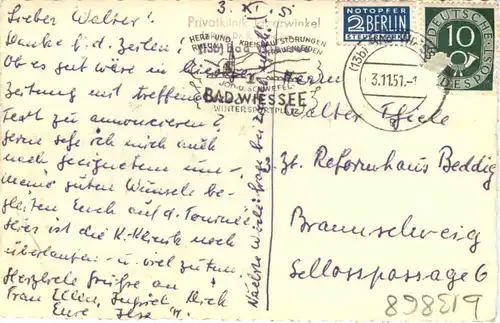 3. XI. 51
Lieber Walter!
Danke f. d. Zeilen!
Ob es gut wäre in
Zeitung mit treffendem
Text zu annoncieren?
Gerne sehe ich mich auch
nach geeignetem um –
meine guten Wünsche be-
gleiten Euch auf d. Tournée
hier ist die K.-Klinik noch
überlaufen – u. viel zu tun.
Herzliche Grüße an
Frau Ellen, Ingrid, Dich
Eure Ilse
Privatklinik
HERZ- U. KREISLAUFSTÖRUNGEN
BAD WIESSEE
WINTERSPORTPLATZ
(13b)
3.11.51.-1
NOTOPFER
2 BERLIN
STEUERMARKE
DEUTSCHE BUNDESPOST
10
Herrn
Walter Thiele
z. Zt. Reformhaus Beddig
Braunschweig
Schlosspassage 6
B13868